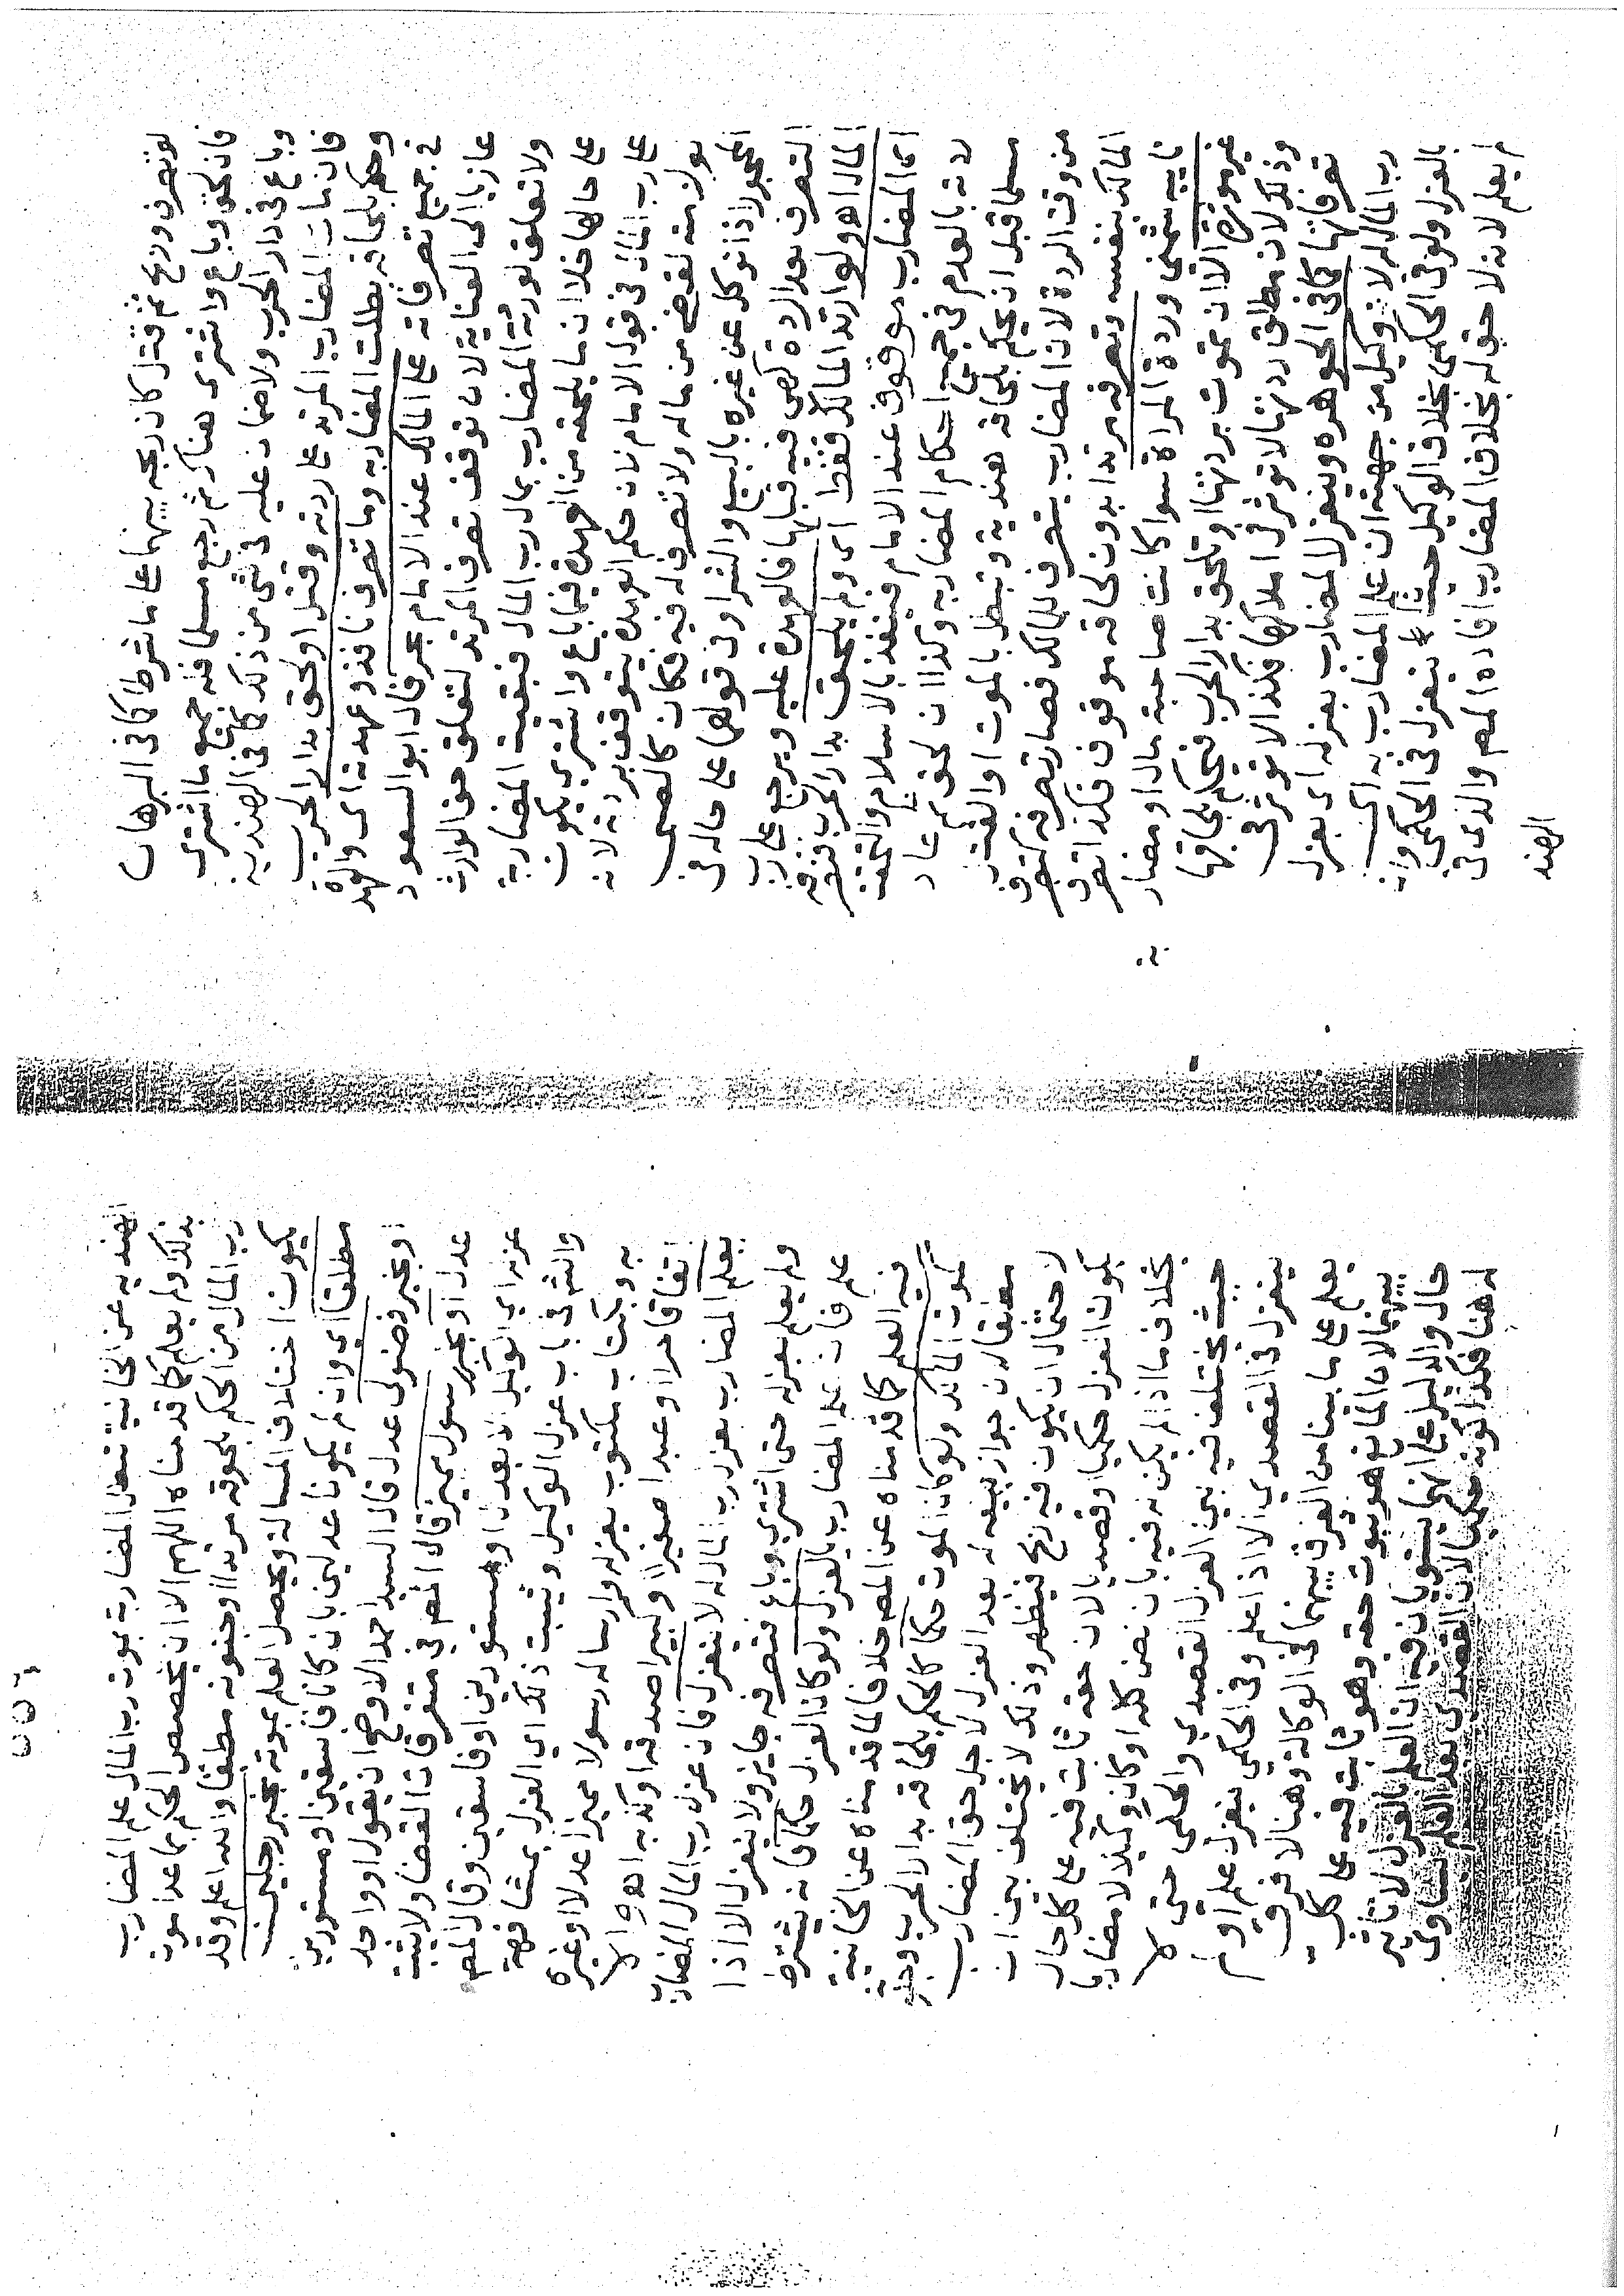 لو تصرف وربح ثم قتل كان ربحه بينهما على ما شرطا كما في البرهان
فان لحق وباع واشترى هناك ثم رجع مسلما فله جميع ما اشترى
وباع في دار الحرب ولا ضمان عليه في شي من ذلك كما في الهنديه
فان مات المضارب المرتد على ردته وقتل او لحق بدار الحرب
وحكم بلحاقه بطلت المضاربه وما تصرف نافذ وعهدته اي والعهدة
في جميع تصرفاته على المالك عند الامام بحر قال ابو السعود
عازيا الى العناية لان توقف تصرف المرتد لتعلق حق الوارث
ولا تعلق لورثة المضارب بمال رب المال فبقيت المضاربة
على حالها خلا ان ما يلحقه من العهدة فيما باع واشترى يكون
على رب المال في قول الامام لان حكم العهدة يتوقف بردته لانه
لو لزمته لقضى من ماله ولا تصرف له فيه فكان كالصبي
المحجور اذا توكل عن غيره بالبيع والشرا وفي قولهما على حاله في
التصرف بعد الردة كهي فيه قبلها فالعهدة عليه ويرجع على رب
المال اه ولو ارتد المالك فقط اي ولم يلحق بدار الحرب فتصرفه
اي المضارب موقوف عند الامام فينفذ بالاسلام والتحقت
ردته بالعدم في جميع احكام المضاربه وكذا ان لحق ثم عاد
مسلما قبل ان يحكم بلحاقه هنديه وتبطل بالموت او القتل
من وقت الردة لان المضارب يتصرف للمالك فصار تصرفه كتصرف
المالك بنفسه وتصرفه مرتدا بدون لحاقه موقوف فكذا تصرف
نايبه شمني وردة المراة سوا كانت صاحبة مال او مضار
غير موثرة الا ان تموت بردتها او تلحق بدار الحرب فيحكم بلحاقها
وذلك لان مطلق ردتها لا توثر في املاكها فكذا لا توثر في
تصرفاتها كما في الجوهره وينعزل المضارب بعزله اي بعزل
رب المال له لانه وكيل من جهته ان علم المضارب به اي
بالعزل ولو في الحكمي بخلاف الوكيل حيث ينعزل في الحكمي وان
لم يعلم لانه لا حق له بخلاف المضارب افاده المص والذي في
الهند
الهنديه عن الخانية تبطل المضاربة بموت رب المال علم المضارب
بذلك او لم يعلم كما قدمناه اللهم الا ان يخصص الحكم بما عدا موت
رب المال من الحكم بلحوقه مرتدا او جنونه مطبقا والله اعلم وقد
يكون اختلاف المسالة ويحصل العلم بموته بخبر رجلين
مطلقا اي وان لم يكونا عدلين بان كانا فاسقين او مستورين
او بخبر فضولي عدل قال السيد احمد الاوضح ان يقول او واحد
عدل او بخبر رسول مميز قال المص في متفرقات القضا ولا يثبت
عزله اي الوكيل الا بعدل او مستورين او فاسقين وقال المص
والش في باب عزل الوكيل ويثبت ذلك اي العزل بمشافهة
به وبكتاب مكتوب بعزله وارساله رسولا مميزا عدلا او غيره
اتفاقا حرا او عبدا صغيرا او كبيرا صدقه او كذبه اه والا
يعلم المضارب بعزل رب المال له لا ينعزل فان عزل رب المال المضارب
ولم يعلم بعزله حتى اشترى وباع فتصرفه جايز ولا ينعزل الا اذا
علم فان علم المضارب بالعزل ولو كان العزل حكما فانه يشترط
فيه العلم كما قدمناه عن المص خلافا لما قدمناه عن الخانية
كموت المالك ولو كان الموت حكما كالحكم بلحاقه بدار الحرب وجنونه
مطبقا لان جواز بيعه له بعد العزل لاجل حق المضارب
لاحتمال ان يكون فيه ربح فيظهر وذلك لا يختلف بين ان
يكون العزل حكميا او قصديا لان حقه ثابت فيه على كل حال
بخلاف ما اذا لم يكن له فيه بان نض كله او كان وكيلا لا مضاربا
حيث يختلف فيه بين العزل القصدي والحكمي حتى لا
ينعزل في القصدي الا اذا علم وفي الحكمي ينعزل علم او لم
يعلم على ما بينا من الفرق بينهما في الوكالة وهنا لا فرق
بينهما لان المانع هو ثبوت حقه وهو ثابت فيه على كل
حال والدليل على انهما يستويان فيه ان العلم بالعزل لا تاثير
له هنا فكذا كونه حكميا لان القصدي بعد العلم تساوي